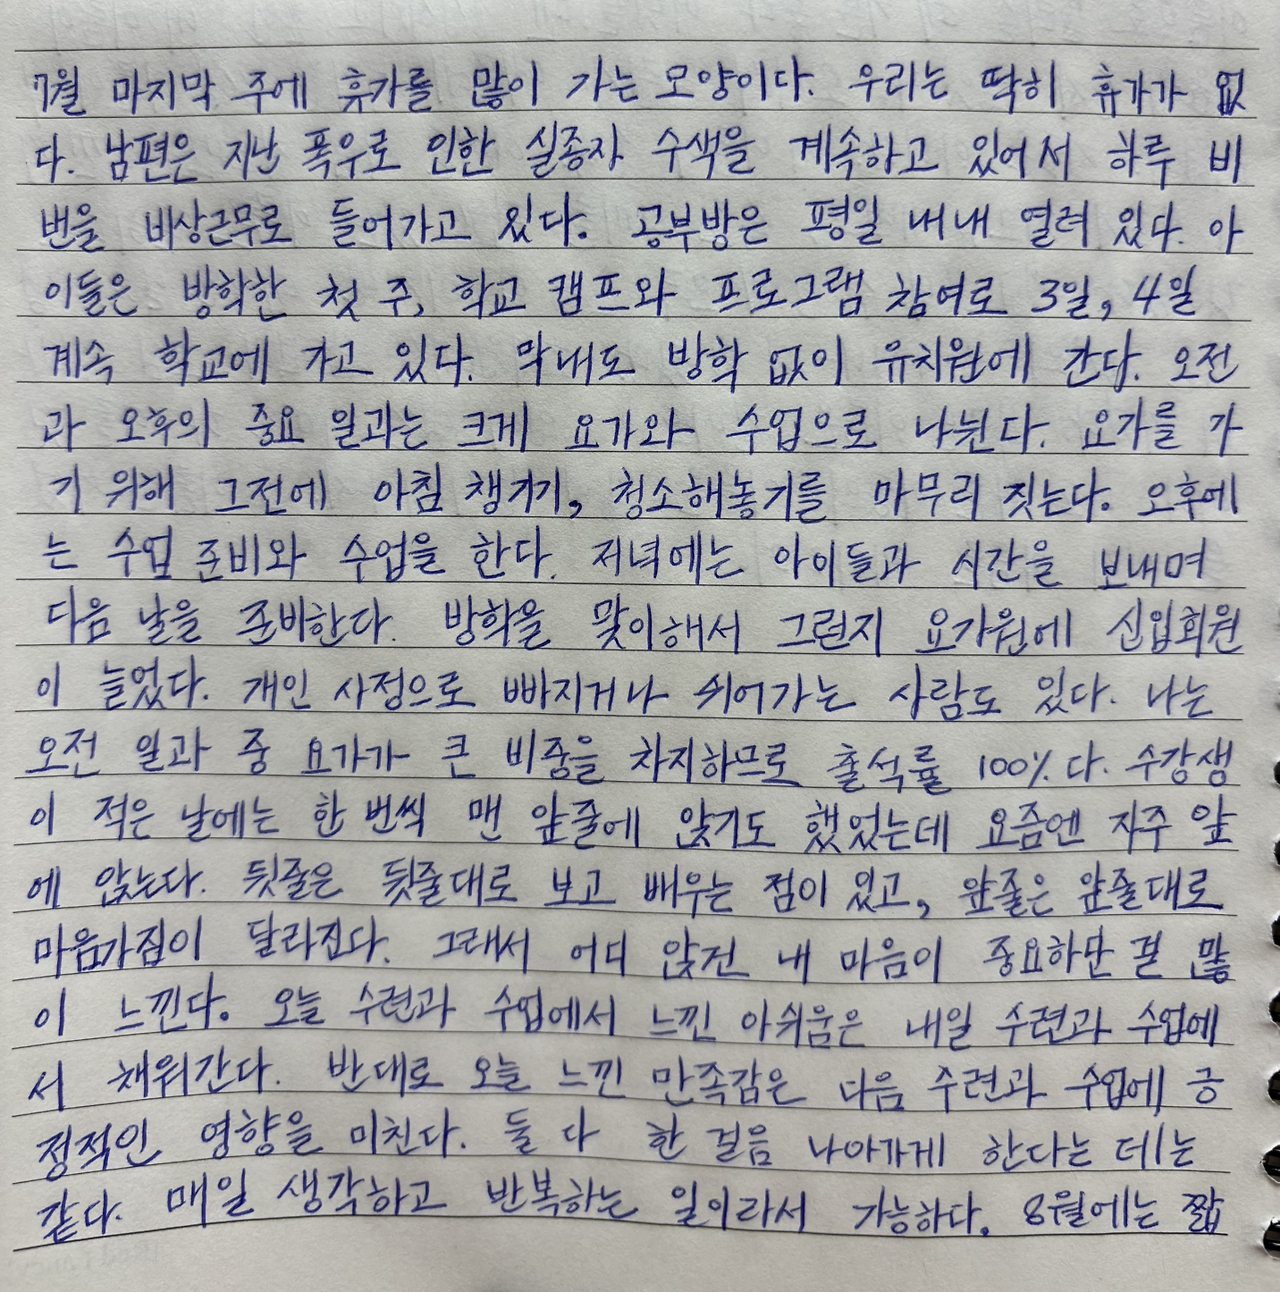 7월 마지막 주에 휴가를 많이 가는 모양이다. 우리는 딱히 휴가가 없
다. 남편은 지난 폭우로 인한 실종자 수색을 계속하고 있어서 하루 비
번을 비상근무로 들어가고 있다. 공부방은 평일 내내 열려 있다. 아
이들은 방학한 첫 주, 학교 캠프와 프로그램 참여로 3일, 4일
계속 학교에 가고 있다. 막내도 방학 없이 유치원에 간다. 오전
과 오후의 중요 일과는 크게 요가와 수업으로 나뉜다. 요가를 가
기 위해 그전에 아침 챙기기, 청소해놓기를 마무리 짓는다. 오후에
는 수업 준비와 수업을 한다. 저녁에는 아이들과 시간을 보내며
다음 날을 준비한다. 방학을 맞이해서 그런지 요가원에 신입회원
이 늘었다. 개인 사정으로 빠지거나 쉬어가는 사람도 있다. 나는
오전 일과 중 요가가 큰 비중을 차지하므로 출석률 100%다. 수강생
이 적은 날에는 한 번씩 맨 앞줄에 앉기도 했었는데 요즘엔 자주 앞
에 앉는다. 뒷줄은 뒷줄대로 보고 배우는 점이 있고, 앞줄은 앞줄대로
마음가짐이 달라진다. 그래서 어디 앉건 내 마음이 중요하단 걸 많
이 느낀다. 오늘 수련과 수업에서 느낀 아쉬움은 내일 수련과 수업에
서 채워간다. 반대로 오늘 느낀 만족감은 다음 수련과 수업에 긍
정적인 영향을 미친다. 둘 다 한 걸음 나아가게 한다는 데는
같다. 매일 생각하고 반복하는 일이라서 가능하다. 8월에는 짧